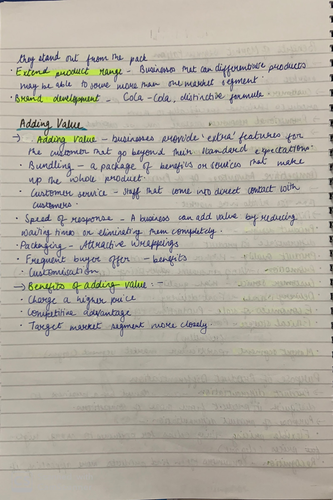 they stand out from the pack
• Extend product range - Businesses that can differentiate products
may be able to serve more than one market segment.
• Brand development - Cola-Cola, distinctive formula
Adding Value
→ Adding value - businesses provide 'extra' features for
the customer that go beyond their standard expectations.
• Bundling - a package of benefits or services that make
up the whole product.
• Customer service - staff that come into direct contact with
customers.
• Speed of response - A business can add value by reducing
waiting times or eliminating them completely.
• Packaging - Attractive wrappings
• Frequent buyer offer - benefits
• Customisation
→ Benefits of adding value :-
• Charge a higher price
• Competitive advantage
• Target market segment more closely.